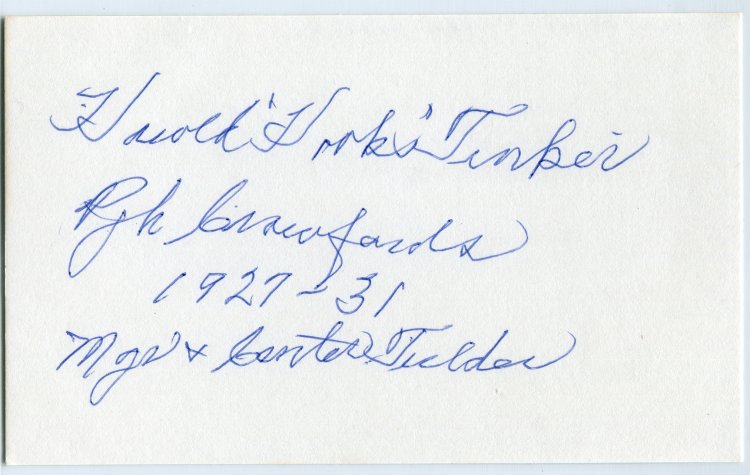 Harold "Hooks" Tinker
Pgh Crawfords
1927-31
Mgr + Center Fielder